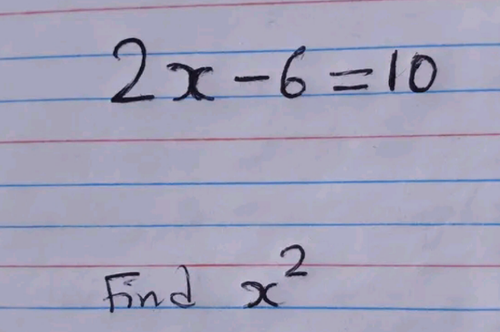 2x - 6 = 10
Find x²